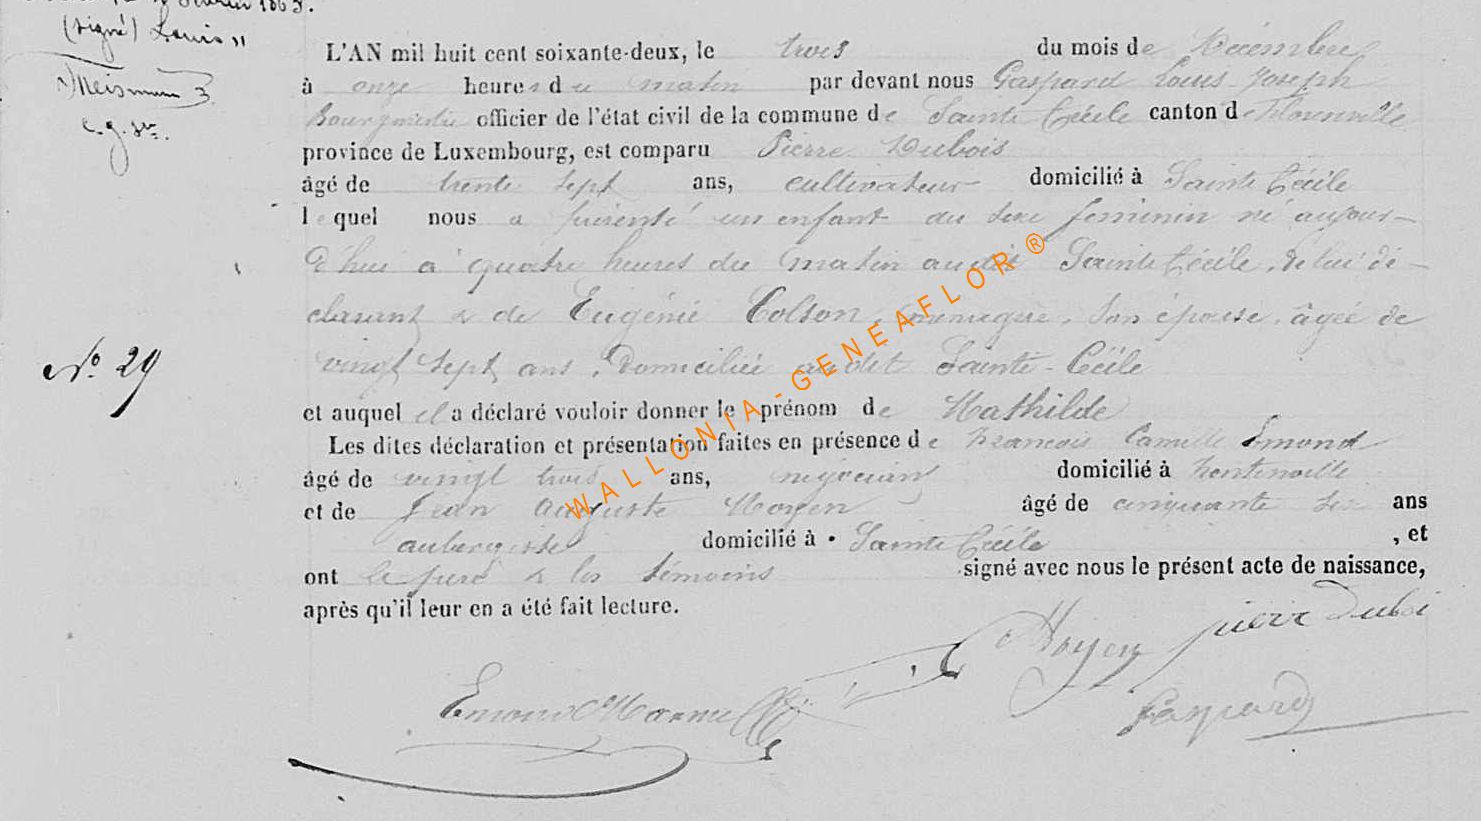 (signé) Louis "
L'AN mil huit cent soixante-deux, le trois du mois de Décembre
à onze heures du matin par devant nous Gaspard Louis Joseph
Bourgmestre officier de l'état civil de la commune de Sainte Cécile canton de Florenville
province de Luxembourg, est comparu Pierre Dubois
âgé de trente sept ans, cultivateur domicilié à Sainte Cécile
lequel nous a présenté un enfant du sexe feminin né aujour-
d'hui à quatre heures du matin audit Sainte Cécile, de lui dé-
clarant & de Eugénie Colson, menagère, son épouse, âgée de
vingt sept ans, domiciliée audit Sainte-Cécile
No. 29
et auquel il a déclaré vouloir donner le prénom de Mathilde
Les dites déclaration et présentation faites en présence de François Camille Emond
âgé de vingt trois ans, négociant domicilié à
et de Jean Auguste Noyen âgé de cinquante six ans
aubergiste domicilié à Sainte Cécile , et
ont le père & les témoins signé avec nous le présent acte de naissance,
après qu'il leur en a été fait lecture.
Noyen pierr Duboi
Emond
Gaspard
WALLONIA-GENEAFLOR ®